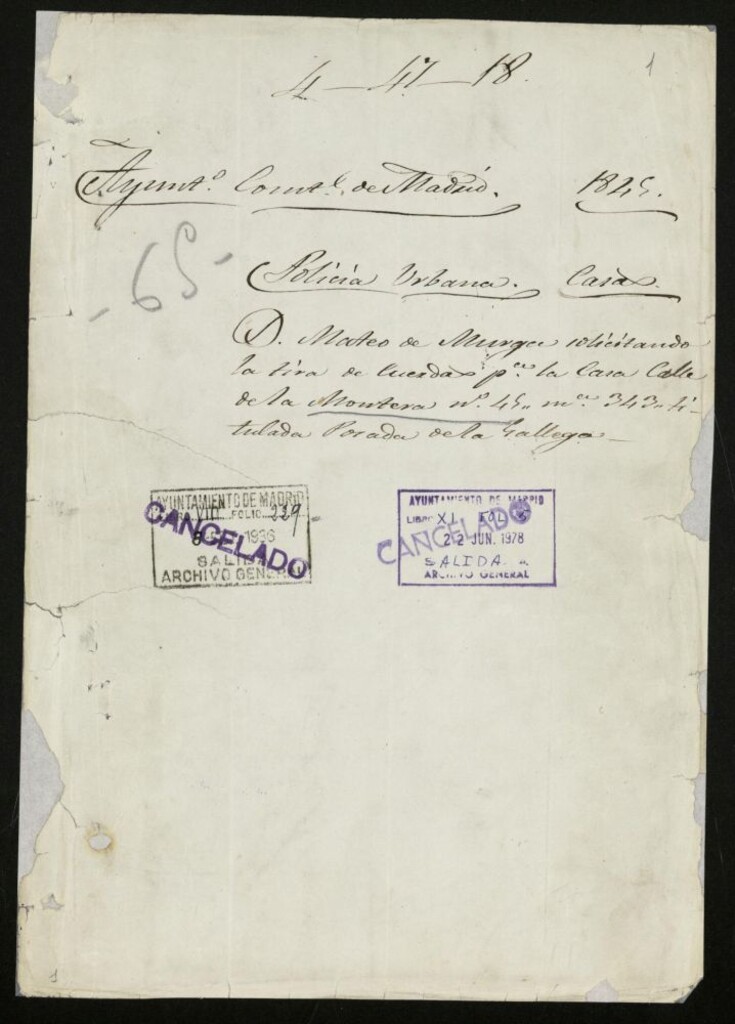 4-47-18.
1
Ayunt.º Const.l de Madrid. 1845.
-65-
Policía Urbana. Casas.
D. Mateo de Murga solicitando
la tira de Cuerdas p.ª la Casa Calle
de la Montera nº. 45,, m.ª 343,, ti-
tulada Posada de la Gallega-
AYUNTAMIENTO DE MADRID
VIII FOLIO 229
8 1936
SALIDA
ARCHIVO GENERAL
CANCELADO
AYUNTAMIENTO DE MADRID
LIBRO XI FOL
22 JUN. 1978
SALIDA
ARCHIVO GENERAL
CANCELADO
1